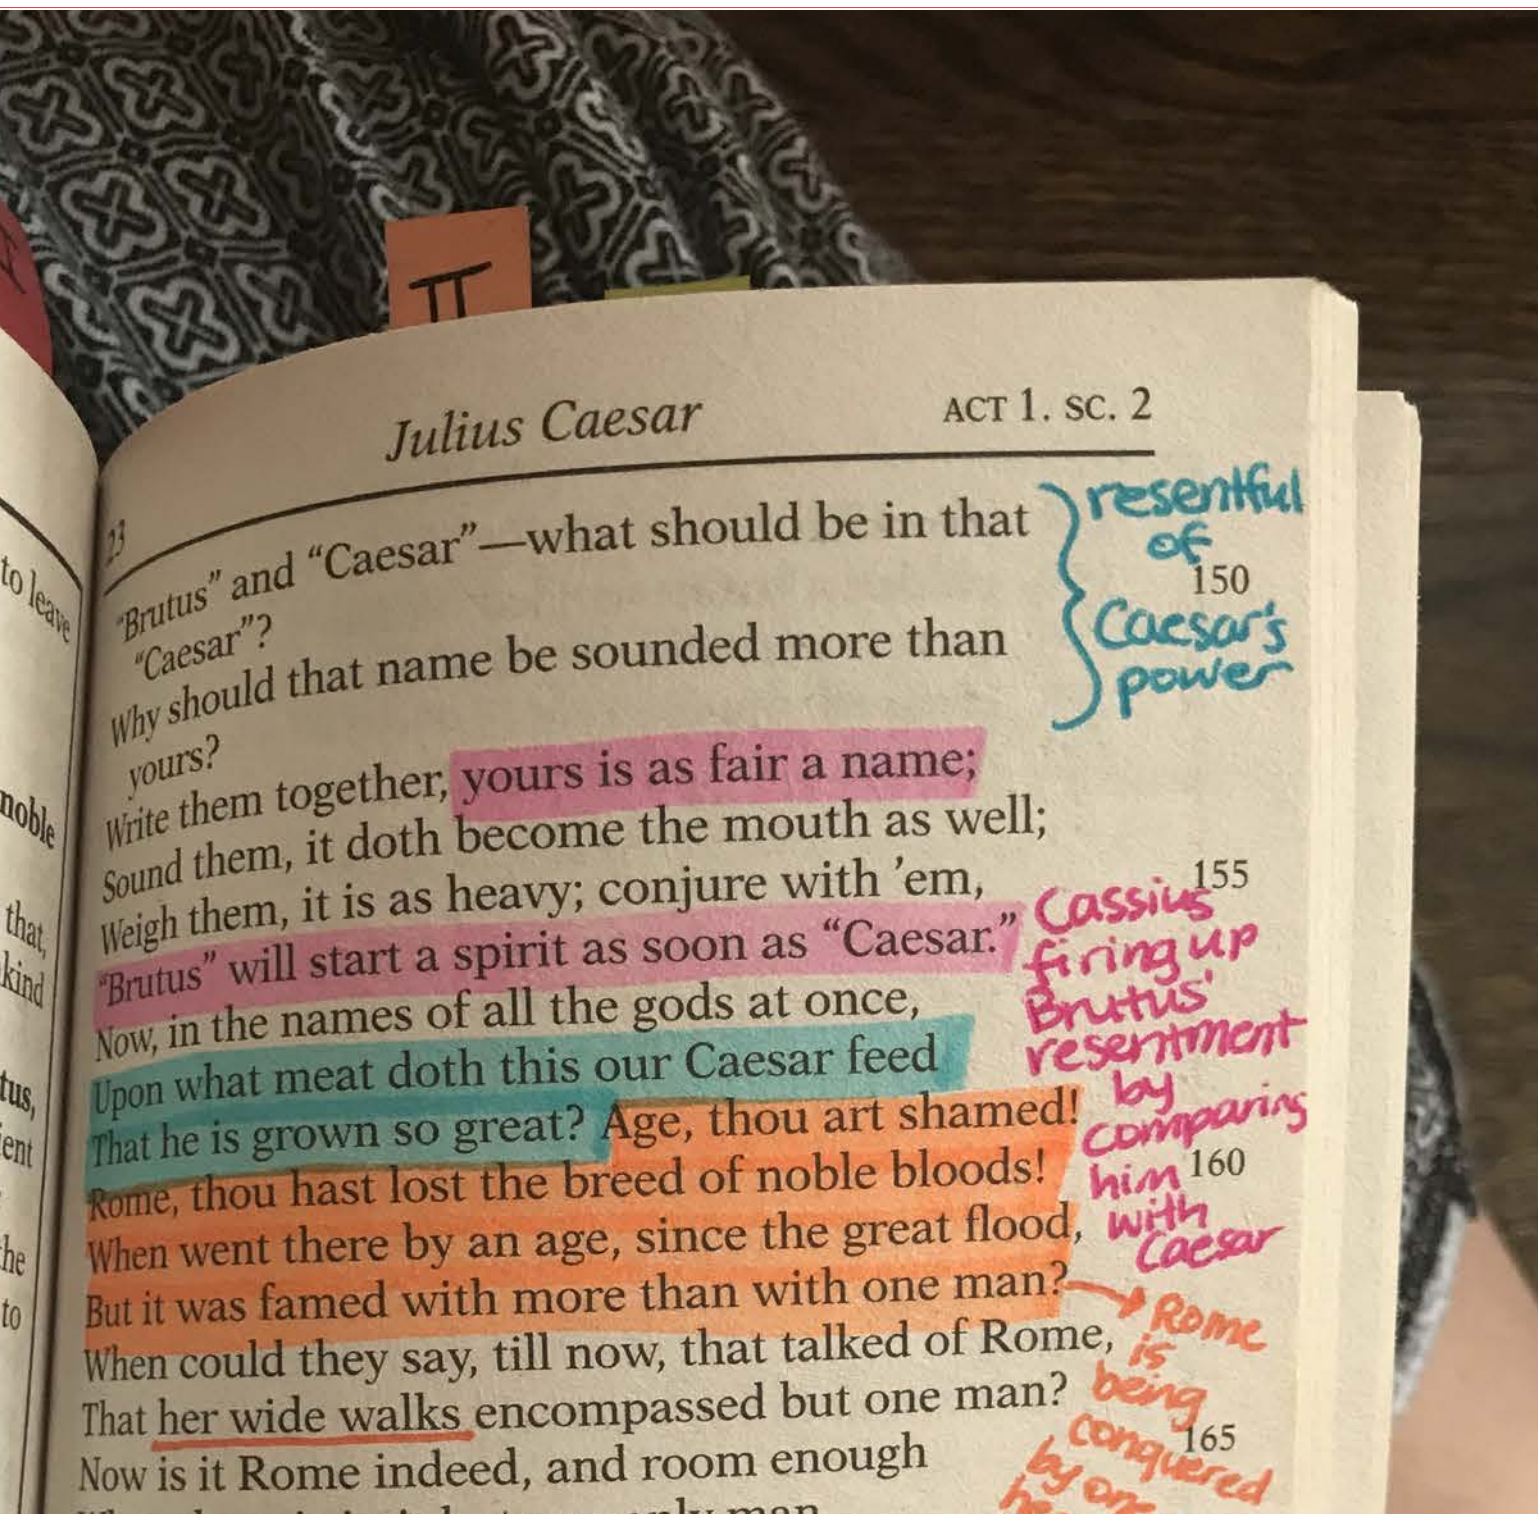 II
Julius Caesar ACT 1. SC. 2
23
"Brutus" and "Caesar"—what should be in that
"Caesar"?
150
Why should that name be sounded more than
yours?
Write them together, yours is as fair a name;
Sound them, it doth become the mouth as well;
Weigh them, it is as heavy; conjure with 'em,
155
"Brutus" will start a spirit as soon as "Caesar."
Now, in the names of all the gods at once,
Upon what meat doth this our Caesar feed
That he is grown so great? Age, thou art shamed!
Rome, thou hast lost the breed of noble bloods!
160
When went there by an age, since the great flood,
But it was famed with more than with one man?
When could they say, till now, that talked of Rome,
That her wide walks encompassed but one man?
Now is it Rome indeed, and room enough
165
only man
resentful
of
Caesar's
power
Cassius
firing up
Brutus'
resentment
by
comparing
him
with
Caesar
Rome
is
being
conquered
by one
to leave
noble
that,
kind
tus,
ient
he
to